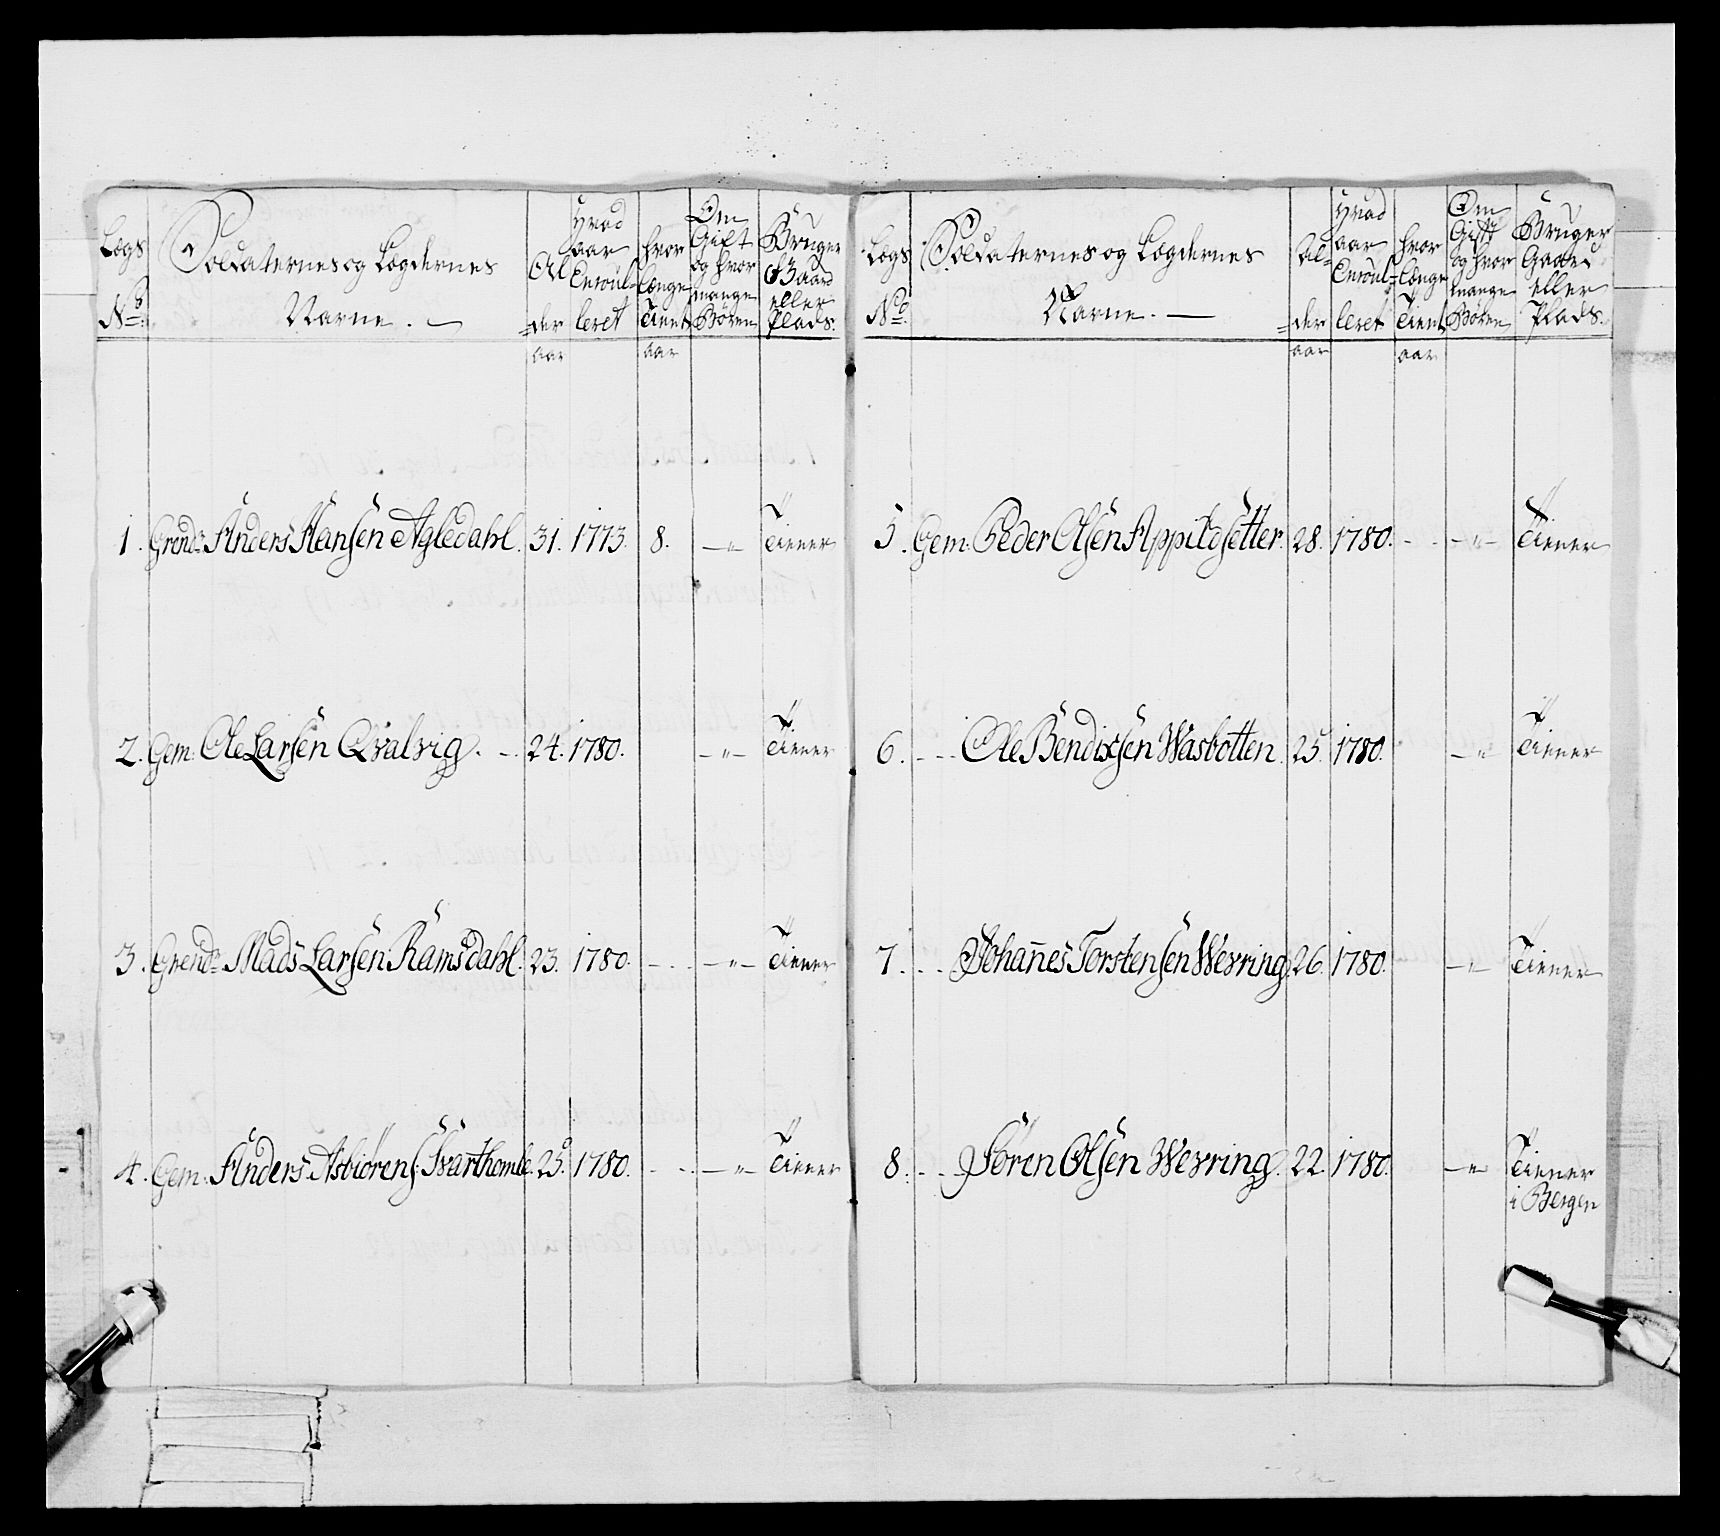 Lægs No.
Soldaternes og Lægdernes Navne. —
Al=der
Hvad aar Enroul=leret
hvor længe Tient
Om Gift og hvor mange Børen
Bruger Gaard eller Plads.
aar aar
1. Grend: Anders Hansen Agledahl. 31. 1773. 8. —"— Tiener
2. Gem: Ole Larsen Qvalvig. — 24. 1780. —"— Tiener
3. Grend: Mads Larsen Ramsdahl. 23. 1780. - - —"— Tiener
4. Gem: Anders Asbiørens: Svarthomle. 25. 1780. - - —"— Tiener
Lægs No.
Soldaternes og Lægdernes Navne. —
Al=der
Hvad aar Enroul=leret
hvor længe Tient
Om Gift og hvor mange Børen
Bruger Gaard eller Plads.
aar aar
5. Gem: Peder Olsen Appildsetter. 28. 1780. - - —"— Tiener
6. - - Ole Bendixsen Wasbotten. 25. 1780. —"— Tiener
7. - - Johannes Torstensen Wevring 26. 1780. —"— Tiener
8. - - Søren Olsen Wevring. 22. 1780. —"— Tiener
i Bergen